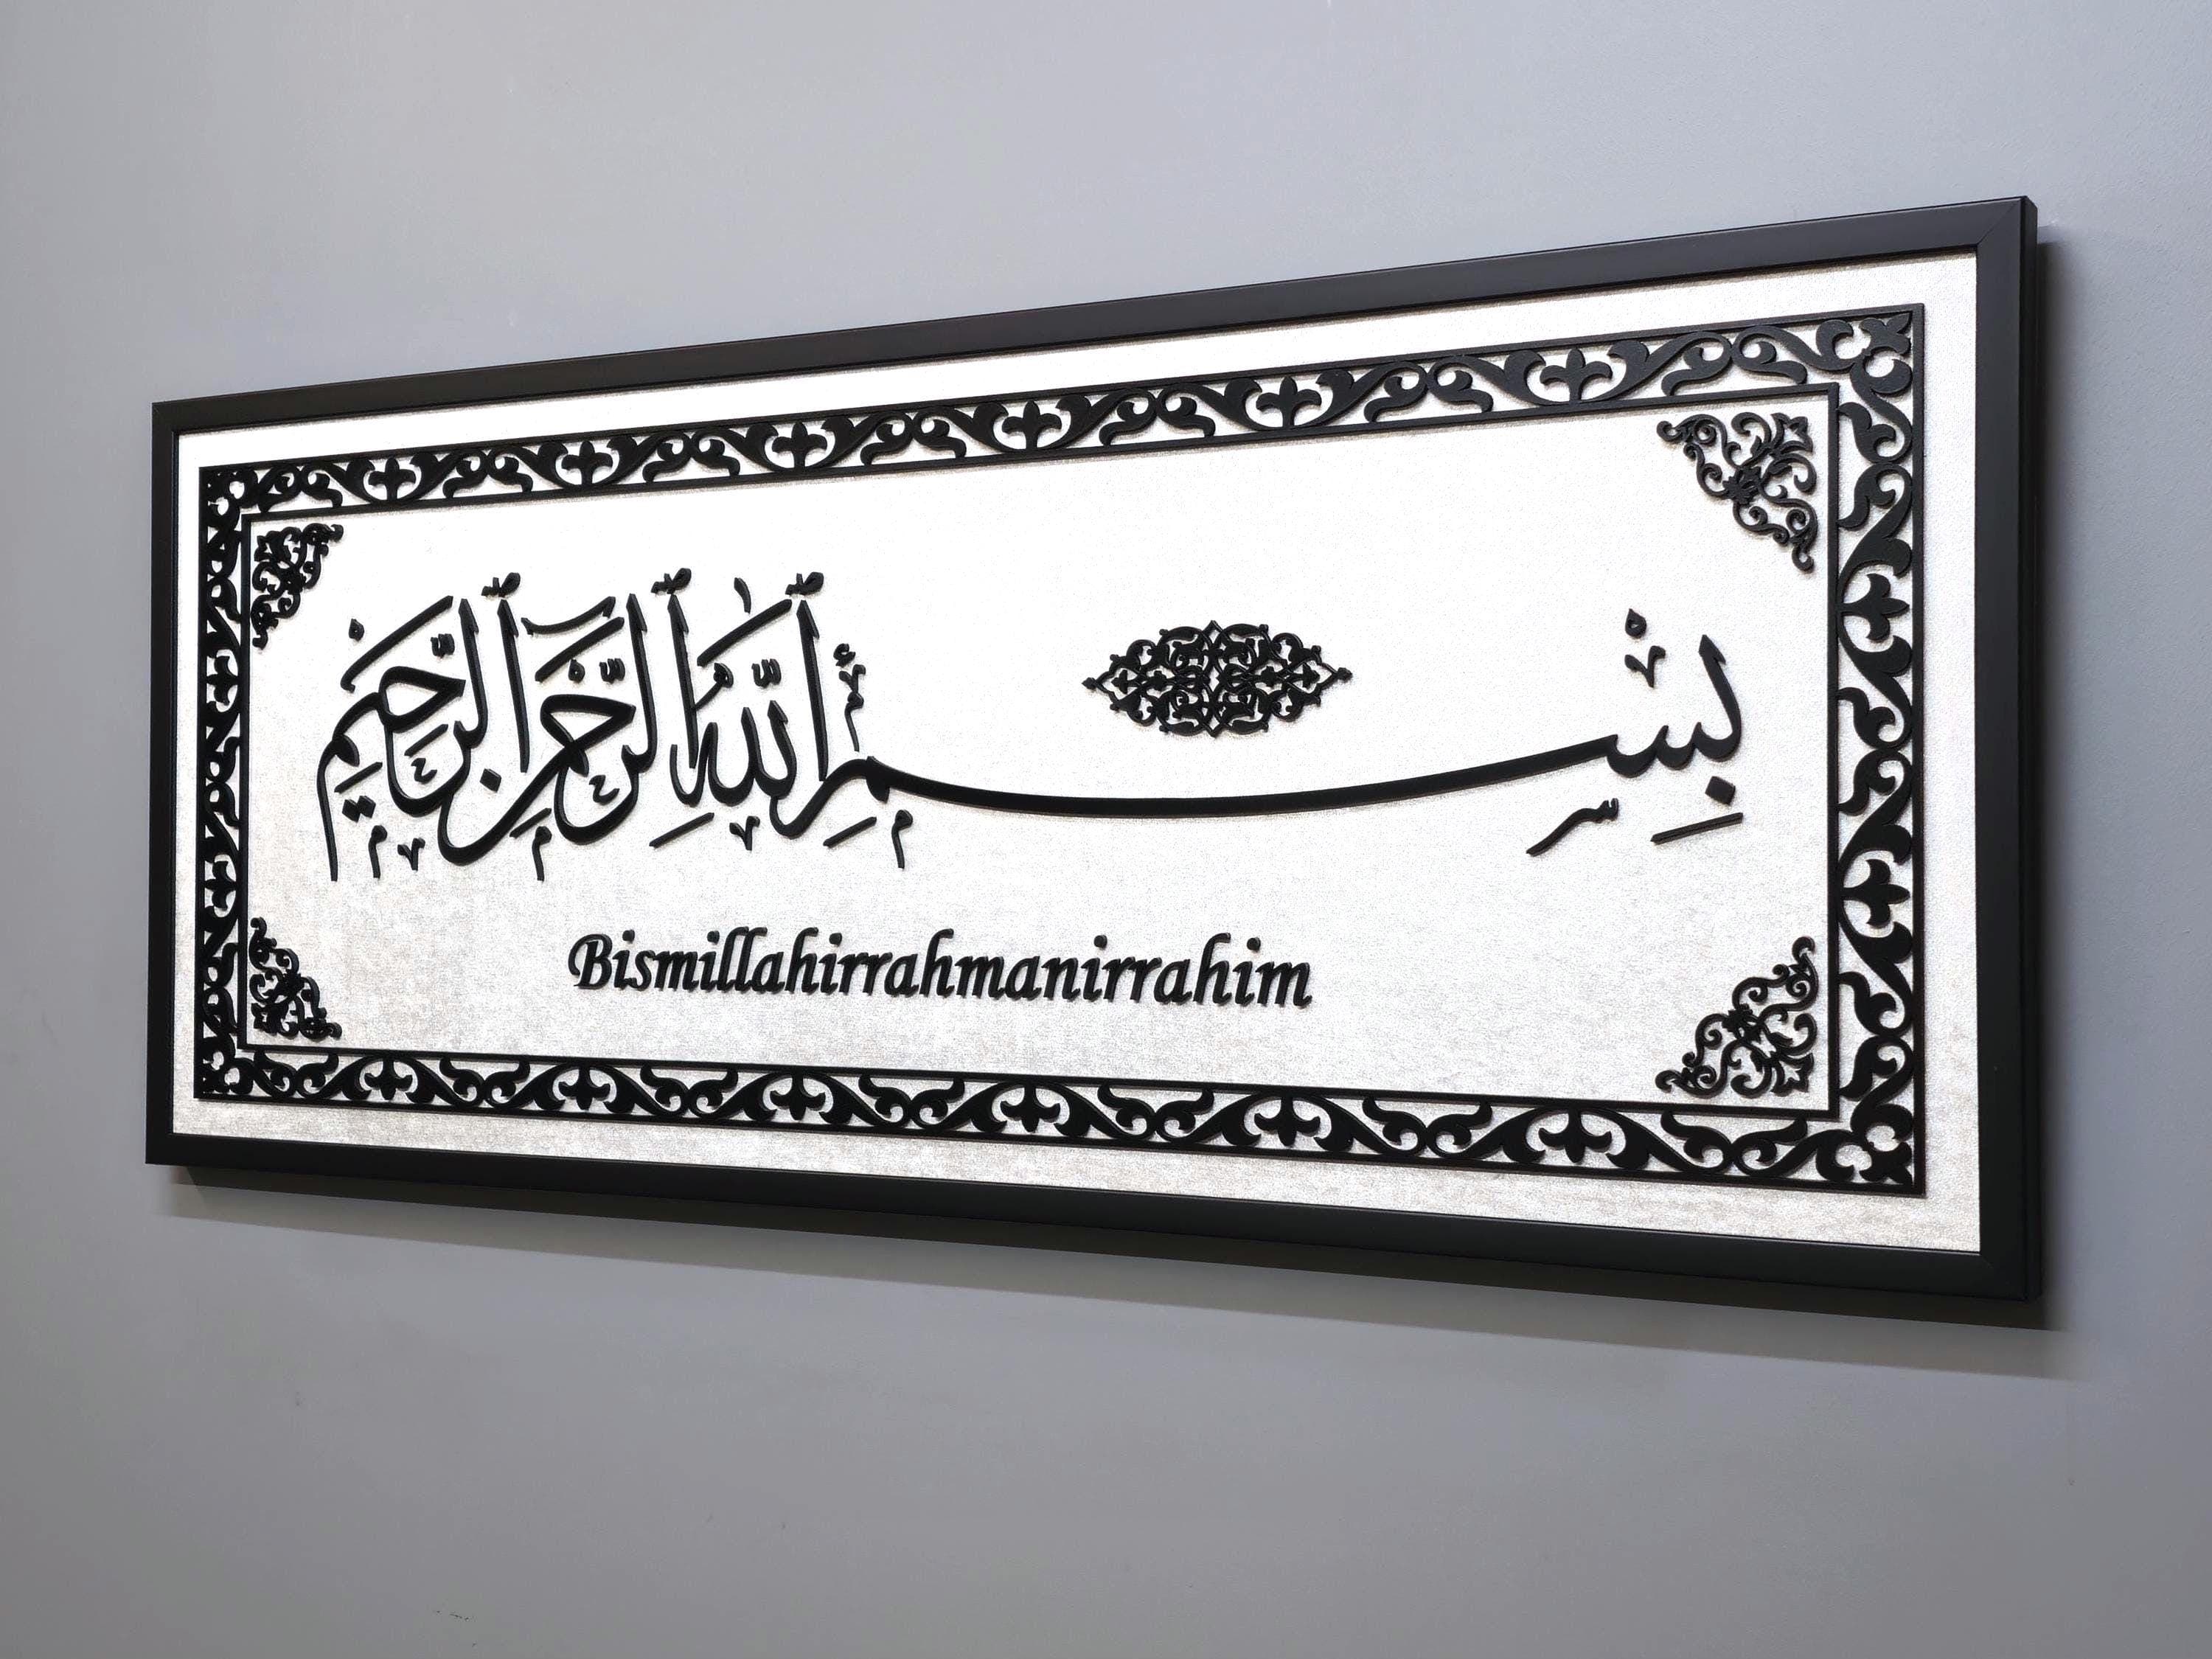 بِسْمِ اللَّهِ الرَّحْمَٰنِ الرَّحِيمِ
Bismillahirrahmanirrahim